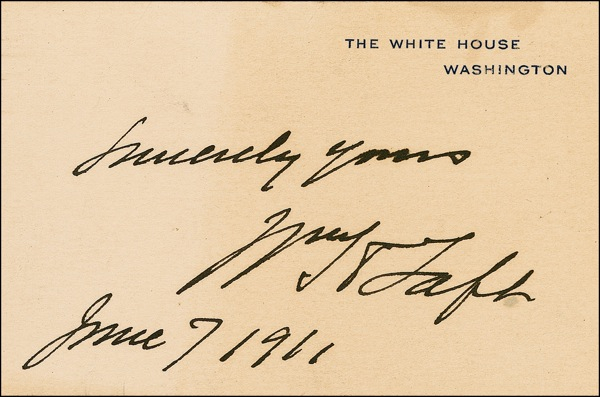 THE WHITE HOUSE
WASHINGTON
Sincerely yours
Wm H Taft
June 7 1911